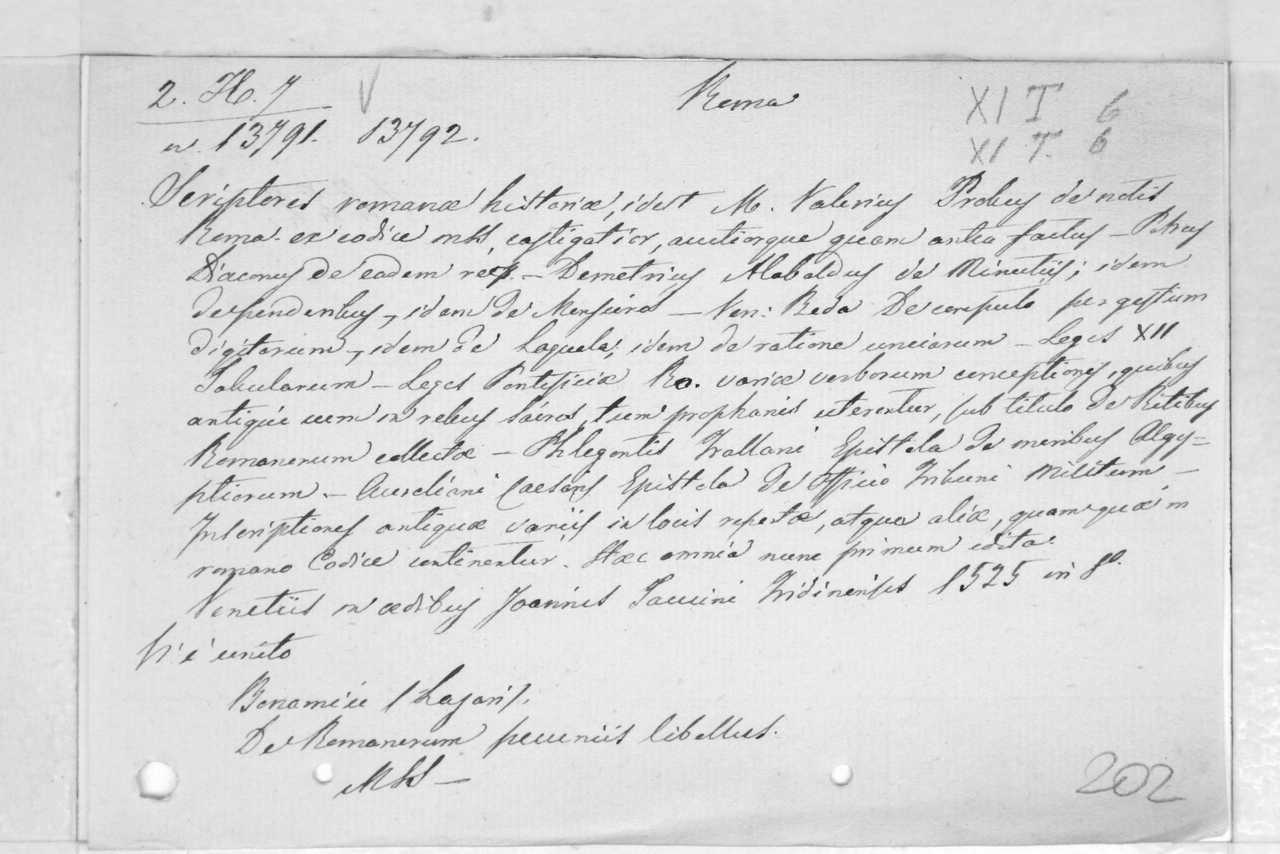 2. H. 7 Roma XI T 6
n. 13791. 13792. XI T. 6
Scriptores romanæ historiæ, idest M. Valerius Probus de notis
Roma. ex codice mss, castigatior, auctiorque quam antea factus – Petrus
Diaconus de eadem re – Demetrius Alabaldus de Minutiis; idem
de ponderibus –, idem de Mensuris – Ven: Beda De computo per gestum
digitorum –, idem de Loquela; idem de ratione unciarum – Leges XII
Tabularum – Leges Pontificiæ Ro. variæ verborum conceptiones, quibus
antiqui cum in rebus sacris, tum prophanis uterentur, sub titulo de Ritibus
Romanorum collectæ – Phlegontis Tralliani Epistola de moribus Aegy=
ptiorum – Aureliani Caesaris Epistola de Officio Tribuni Militum –
Inscriptiones antiquæ variis in locis repertæ, atque aliæ, quam quæ in
romano Codice continentur. Hæc omnia nunc primum edita.
Venetiis in ædibus Joannis Tacuini Tridinensis 1525 in 8º.
Vi è unito
Bonamici (Lazari).
De Romanorum pecuniis libellus.
MSS –
202